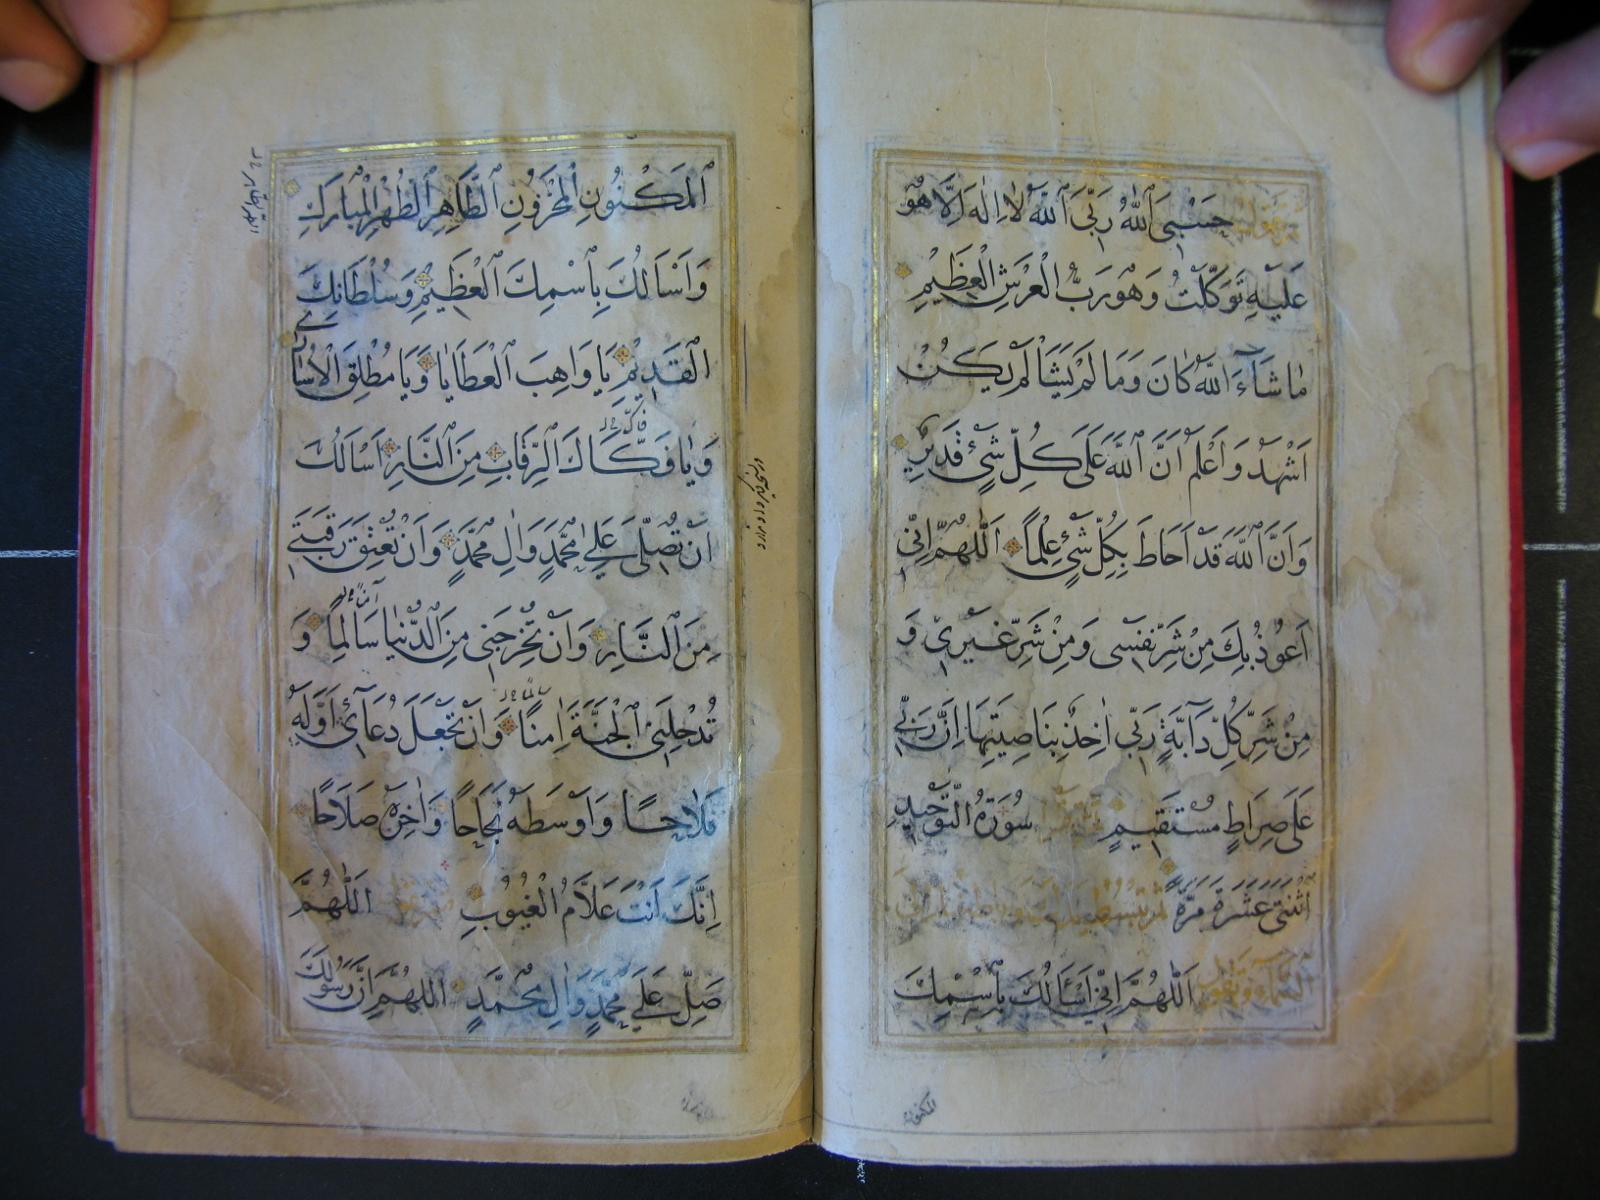 حَسْبِیَ اللّٰهُ رَبِّیَ اللّٰهُ لَا اِلٰهَ اِلَّا هُوَ
عَلَیْهِ تَوَکَّلْتُ وَهُوَ رَبُّ الْعَرْشِ الْعَظِیْمِ
مَا شَآءَ اللّٰهُ کَانَ وَمَا لَمْ یَشَأْ لَمْ یَکُنْ
اَشْهَدُ وَاَعْلَمُ اَنَّ اللّٰهَ عَلَی کُلِّ شَیْءٍ قَدِیْرٌ
وَاَنَّ اللّٰهَ قَدْ اَحَاطَ بِکُلِّ شَیْءٍ عِلْمًا اَللّٰهُمَّ اِنِّی
اَعُوْذُ بِکَ مِنْ شَرِّ نَفْسِی وَمِنْ شَرِّ غَیْرِیْ وَ
مِنْ شَرِّ کُلِّ دَآبَّةٍ رَبِّی اٰخِذٌ بِنَاصِیَتِهَا اِنَّ رَبِّی
عَلَی صِرَاطٍ مُسْتَقِیْمٍ سُوْرَةُ التَّوْحِیْدِ
اِثْنَتَیْ عَشَرَةَ مَرَّةً
اَللّٰهُمَّ اِنِّی اَسْاَلُکَ بِاسْمِکَ
المکنون
اَلْمَکْنُوْنِ الْمَخْزُوْنِ الطَّاهِرِ الطُّهْرِ الْمُبَارَکِ
وَاَسْاَلُکَ بِاسْمِکَ الْعَظِیْمِ وَسُلْطَانِکَ
الْقَدِیْمِ یَا وَاهِبَ الْعَطَایَا وَیَا مُطْلِقَ الْاُسَارٰی
وَیَا فَکَّاکَ الرِّقَابِ مِنَ النَّارِ اَسْاَلُکَ
اَنْ تُصَلِّیَ عَلٰی مُحَمَّدٍ وَاٰلِ مُحَمَّدٍ وَاَنْ تُعْتِقَ رَقَبَتِی
مِنَ النَّارِ وَاَنْ تُخْرِجَنِی مِنَ الدُّنْیَا سَالِمًا وَ
تُدْخِلَنِی الْجَنَّةَ اٰمِنًا وَاَنْ تَجْعَلَ دُعَائِی اَوَّلَهُ
فَلَاحًا وَاَوْسَطَهُ نَجَاحًا وَاٰخِرَهُ صَلَاحًا
اِنَّکَ اَنْتَ عَلَّامُ الْغُیُوْبِ اَللّٰهُمَّ
صَلِّ عَلٰی مُحَمَّدٍ وَاٰلِ مُحَمَّدٍ اَللّٰهُمَّ اِنَّ رَسُوْلَکَ